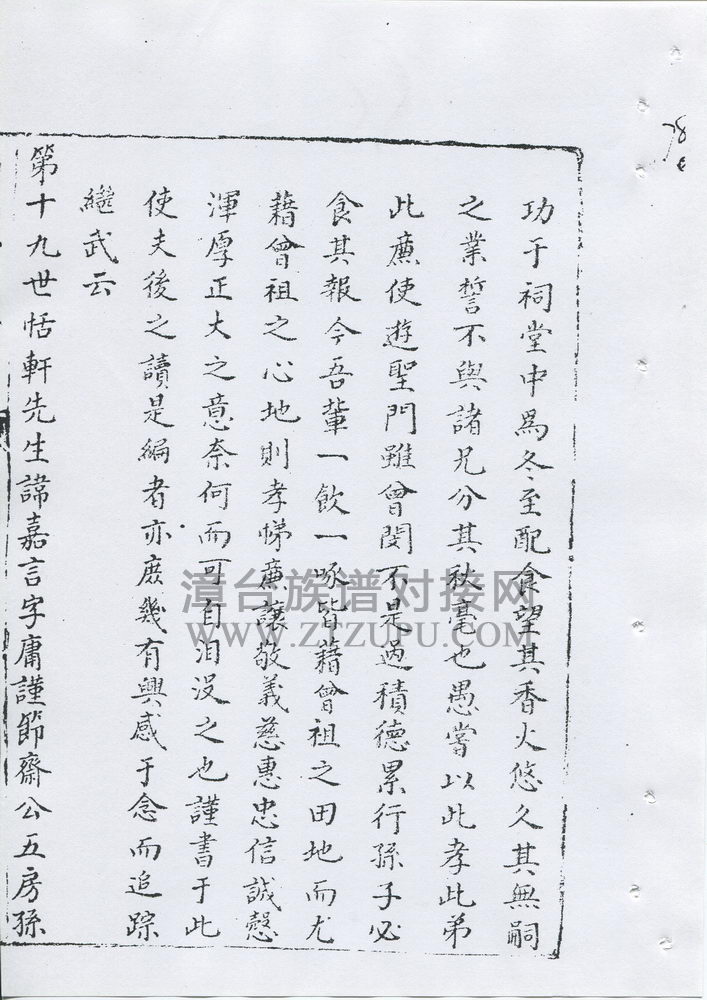 功于祠堂中為冬至配食望其香火悠久其無嗣
之業誓不與諸兄分其秋毫也愚嘗以此孝此弟
此廉使遊聖門雖曾閔不是過積德累行孫子必
食其報今吾輩一飲一啄皆藉曾祖之田地而尤
藉曾祖之心地則孝悌廉讓敬義慈惠忠信誠慤
渾厚正大之意奈何而可自汨沒之也謹書于此
使夫後之讀是編者亦庶幾有興感于念而追踪
繼武云
第十九世恬軒先生諱嘉言字庸謹節齋公五房孫
漳台族谱对接网
WWW.ZTZUPU.COM